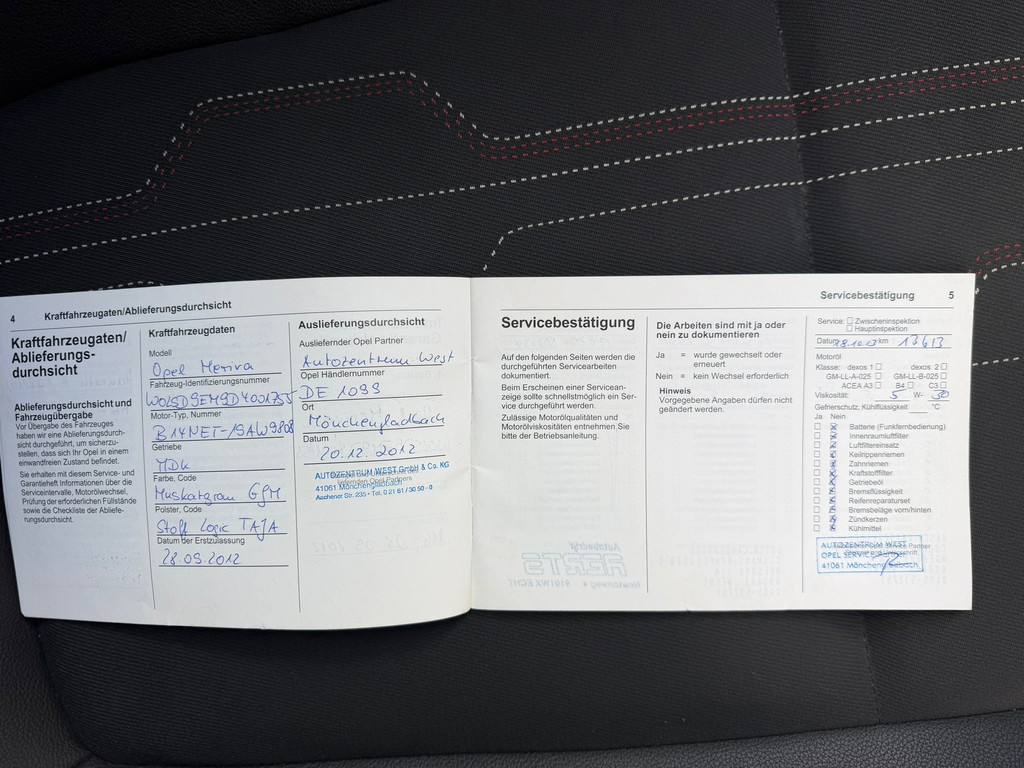 4 Kraftfahrzeugaten/Ablieferungsdurchsicht
Kraftfahrzeugaten/
Ablieferungs-
durchsicht
Ablieferungsdurchsicht und
Fahrzeugübergabe
Vor Übergabe des Fahrzeuges
haben wir eine Ablieferungsdurch-
sicht durchgeführt, um sicherzu-
stellen, dass sich Ihr Opel in einem
einwandfreien Zustand befindet.
Sie erhalten mit diesem Service- und
Garantieheft Informationen über die
Serviceintervalle, Motorölwechsel,
Prüfung der erforderlichen Füllstände
sowie die Checkliste der Abliefe-
rungsdurchsicht.
Kraftfahrzeugdaten
Modell
Opel Meriva
Fahrzeug-Identifizierungsnummer
W0LSD9EM9D4001755
Motor-Typ, Nummer
B14NET-/19AW9808
Getriebe
MDK
Farbe, Code
Muskatgrau G6M
Polster, Code
Stoff Logic TAJA
Datum der Erstzulassung
28.09.2012
Auslieferungsdurchsicht
Ausliefernder Opel Partner
Autozentrum West
Opel Händlernummer
DE 1099
Ort
Mönchengladbach
Datum
20.12.2012
AUTOZENTRUM WEST GmbH & Co. KG
41061 Mönchengladbach
Aachener Str. 235 • Tel. 0 21 61 / 30 50 - 0
Servicebestätigung 5
Servicebestätigung
Auf den folgenden Seiten werden die
durchgeführten Servicearbeiten
dokumentiert.
Beim Erscheinen einer Servicean-
zeige sollte schnellstmöglich ein Ser-
vice durchgeführt werden.
Zulässige Motorölqualitäten und
Motorölviskositäten entnehmen Sie
bitte der Betriebsanleitung.
Die Arbeiten sind mit ja oder
nein zu dokumentieren
Ja = wurde gewechselt oder
erneuert
Nein = kein Wechsel erforderlich
Hinweis
Vorgegebene Angaben dürfen nicht
geändert werden.
Service: Zwischeninspektion
Hauptinspektion
Datum 28.10.13 km 13613
Motoröl
Klasse: dexos 1 dexos 2
GM-LL-A-025 GM-LL-B-025
ACEA A3 B4 C3
Viskosität: 5 W- 30
Gefrierschutz, Kühlflüssigkeit °C
Ja Nein
Batterie (Funkfernbedienung)
Innenraumluftfilter
Luftfiltereinsatz
Keilrippenriemen
Zahnriemen
Kraftstofffilter
Getriebeöl
Bremsflüssigkeit
Reifenreparaturset
Bremsbeläge vorn/hinten
Zündkerzen
Kühlmittel
AUTOZENTRUM WEST
OPEL SERVICE
41061 Mönchengladbach